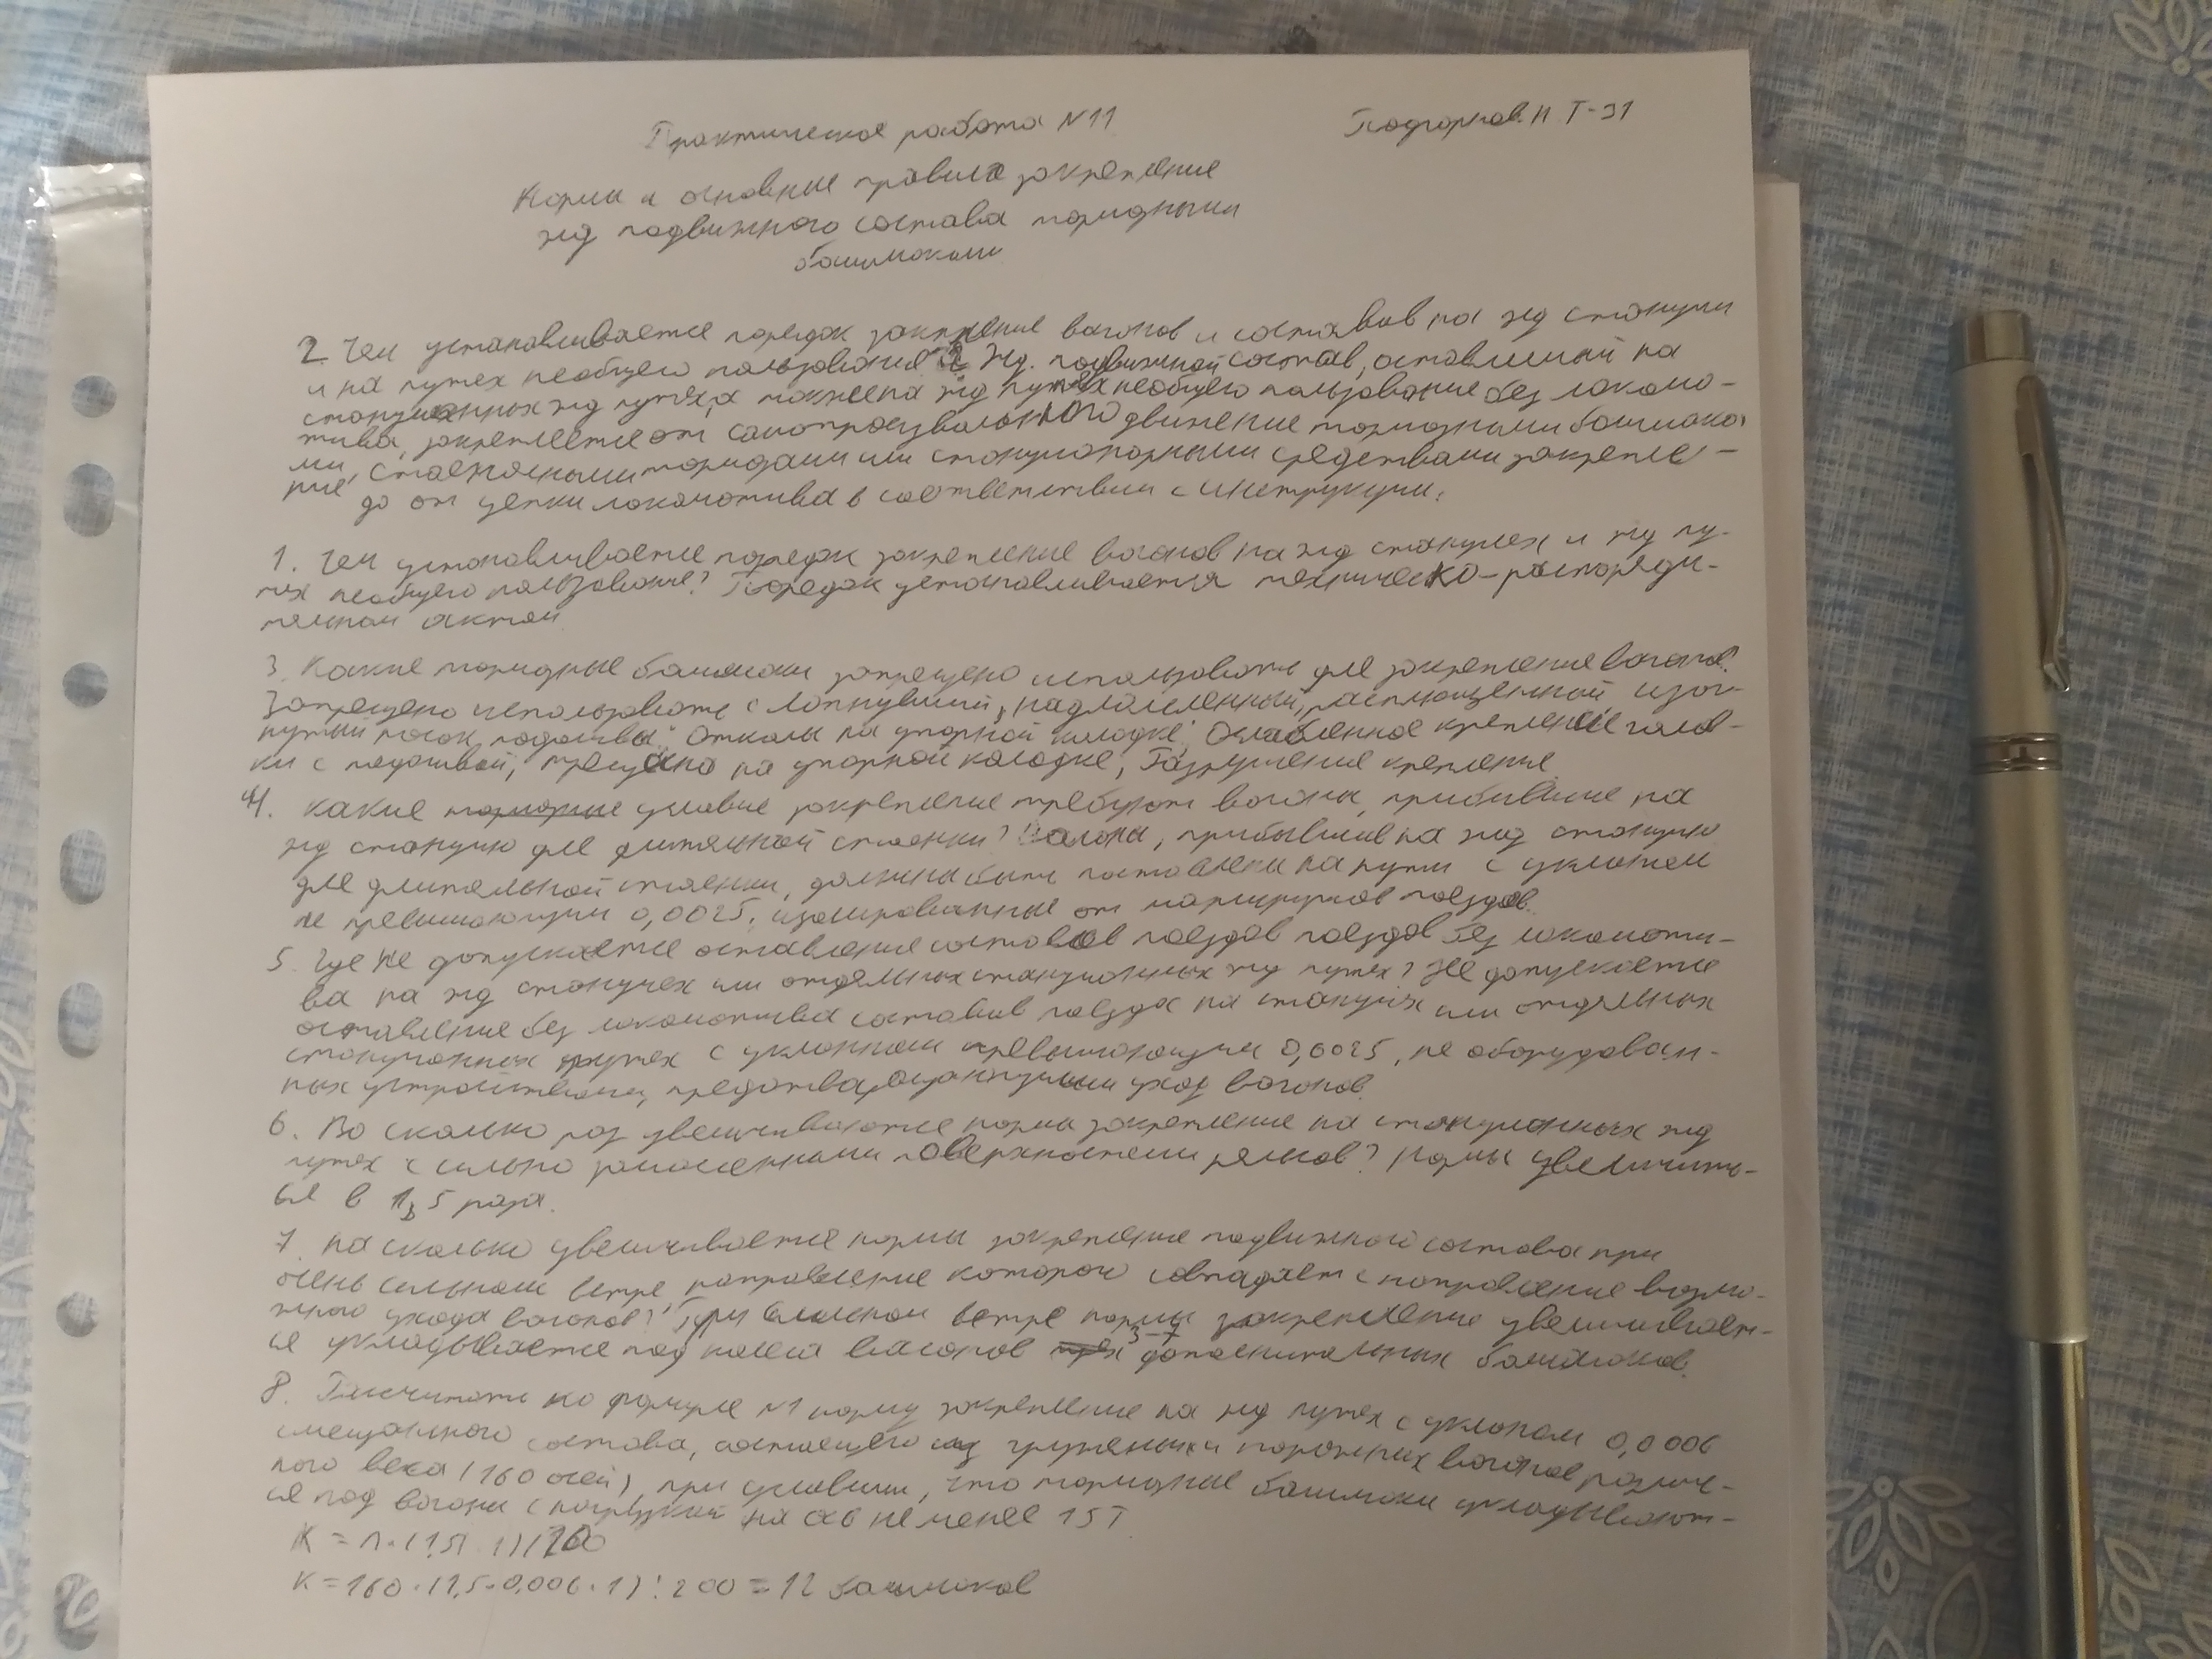 Практическая работа N11
Подгорнов.Н Т-31
Нормы и основные правила закрепление
жд подвижного состава тормозными
башмаками
2 Чем устанавливается порядок закрепление вагонов и составов на жд станции
и на путях необщего пользования? Жд. подвижной состав, оставленный на
станционных жд путях, а также на жд путях необщего пользование без локомо-
тива, закрепляется от самопроизвольного движение тормозными башмака
ми, стояночными тормозами или стационарными средствами закрепле-
ние до от цепки локомотива в соответствии с инструкции.
1. Чем устанавливается порядок закрепление вагонов на жд станциях и жд пу-
тях необщего пользование? Порядок устанавливается техническо-распоряди-
тельной актом
3. Какие тормозные башмаки запрещено использовать для закрепление вагонов?
Запрещено использовать с лопнувший, надломленный, расплющенный изог-
нутый носок подошвы; Отколы на упорной колодке; Ослабленное крепление голов-
ки с подошвой, трещина на упорной колодке, Разрушение крепление
4. Какие условие закрепление требуют вагоны, прибывшие на
жд станцию для длительной стоянки? Вагоны, прибывшие на жд станцию
для длительной стоянки, должны быть поставлены на пути с уклоном
не превышающим 0,0025, изолированные от маршрутов поездов.
5. Где не допускается оставление составов поездов поездов без локомоти-
ва на жд станциях или отдельных станционных жд путях? Не допускается
оставление без локомотива составов поезда на станциях или отдельных
станционных путях с уклонном превышающим 0,0025, не оборудован-
ных устройствами, предотвращающими уход вагонов.
6. Во сколько раз увеличиваются нормы закрепление на станционных жд
путях с сильно замасленными поверхностями рельсов? Нормы увеличить-
ся в 1,5 раза.
7. на сколько увеличивается нормы закрепление подвижного состава при
очень сильном ветре направление которого совпадает с направление возмо-
жного ухода вагонов? При сильном ветре нормы закрепление увеличивает-
ся укладывается под колеса вагонов 3-7 дополнительных башмаков.
8. Рассчитать по формуле N1 норму закрепление на жд путях с уклоном 0,0006
смешанного состава, состоящего из груженых и порожних вагонов различ-
ного веса (160 осей), при условии, что тормозные башмаки укладывают-
ся под вагоны с нагрузкой на ось не менее 15Т
K = n · (1,5i · 1) / 200
K = 160 · (1,5 · 0,006 · 1) : 200 = 12 башмаков